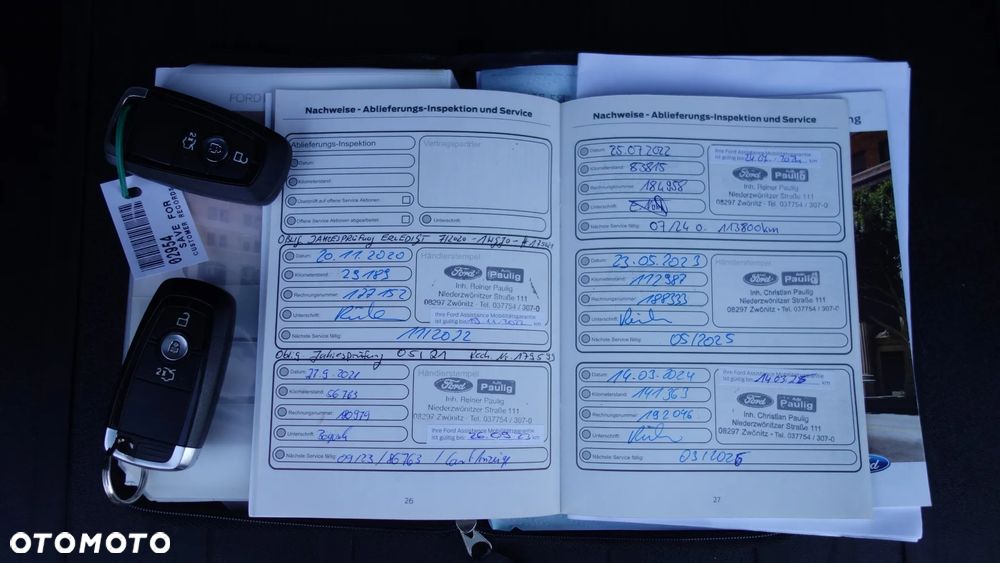 FORD
02954
SAVE FOR
CUSTOMER RECORDS
Nachweise - Ablieferungs-Inspektion und Service
Ablieferungs-Inspektion
Vertragspartner
Datum:
Kilometerstand:
Überprüft auf offene Service Aktionen
Offene Service Aktionen abgearbeitet
Unterschrift:
Oblig. JAHRESPRÜFUNG ERLEDIGT 7/2020
Datum: 20.11.2020
Händlerstempel
Kilometerstand: 29189
Ford Paulig
Rechnungsnummer: 177152
Inh. Reiner Paulig
Niederzwönitzer Straße 111
08297 Zwönitz · Tel. 037754 / 307-0
Unterschrift:
Ihre Ford Assistance Mobilitätsgarantie
ist gültig bis: km
Nächste Service fällig: 11/2022
Oblig. Jahresprüfung 05/21 Rech. Nr. 179593
Datum: 27.9.2021
Händlerstempel
Kilometerstand: 56763
Ford Paulig
Rechnungsnummer: 180979
Inh. Reiner Paulig
Niederzwönitzer Straße 111
08297 Zwönitz · Tel. 037754 / 307-0
Unterschrift:
Ihre Ford Assistance Mobilitätsgarantie
ist gültig bis: 26.09.23 km
Nächste Service fällig: 09/23/86763 / laut Anzeige
26
Nachweise - Ablieferungs-Inspektion und Service
Datum: 25.07.2022
Ihre Ford Assistance Mobilitätsgarantie
ist gültig bis: km
Kilometerstand: 83815
Ford Paulig
Rechnungsnummer: 184958
Inh. Reiner Paulig
Niederzwönitzer Straße 111
08297 Zwönitz · Tel. 037754 / 307-0
Unterschrift:
Nächste Service fällig: 07/24 o. 113800km
Datum: 23.05.2023
Händlerstempel
Kilometerstand: 112987
Ford Paulig
Rechnungsnummer: 188333
Inh. Christian Paulig
Niederzwönitzer Straße 111
08297 Zwönitz · Tel. 037754 / 307-0
Unterschrift:
Nächste Service fällig: 05/2025
Datum: 14.03.2024
Ihre Ford Assistance Mobilitätsgarantie
ist gültig bis: 14.03.26 km
Kilometerstand: 141363
Ford Paulig
Rechnungsnummer: 192046
Inh. Christian Paulig
Niederzwönitzer Straße 111
08297 Zwönitz · Tel. 037754 / 307-0
Unterschrift:
Nächste Service fällig: 03/2026
27
Ford
OTOMOTO